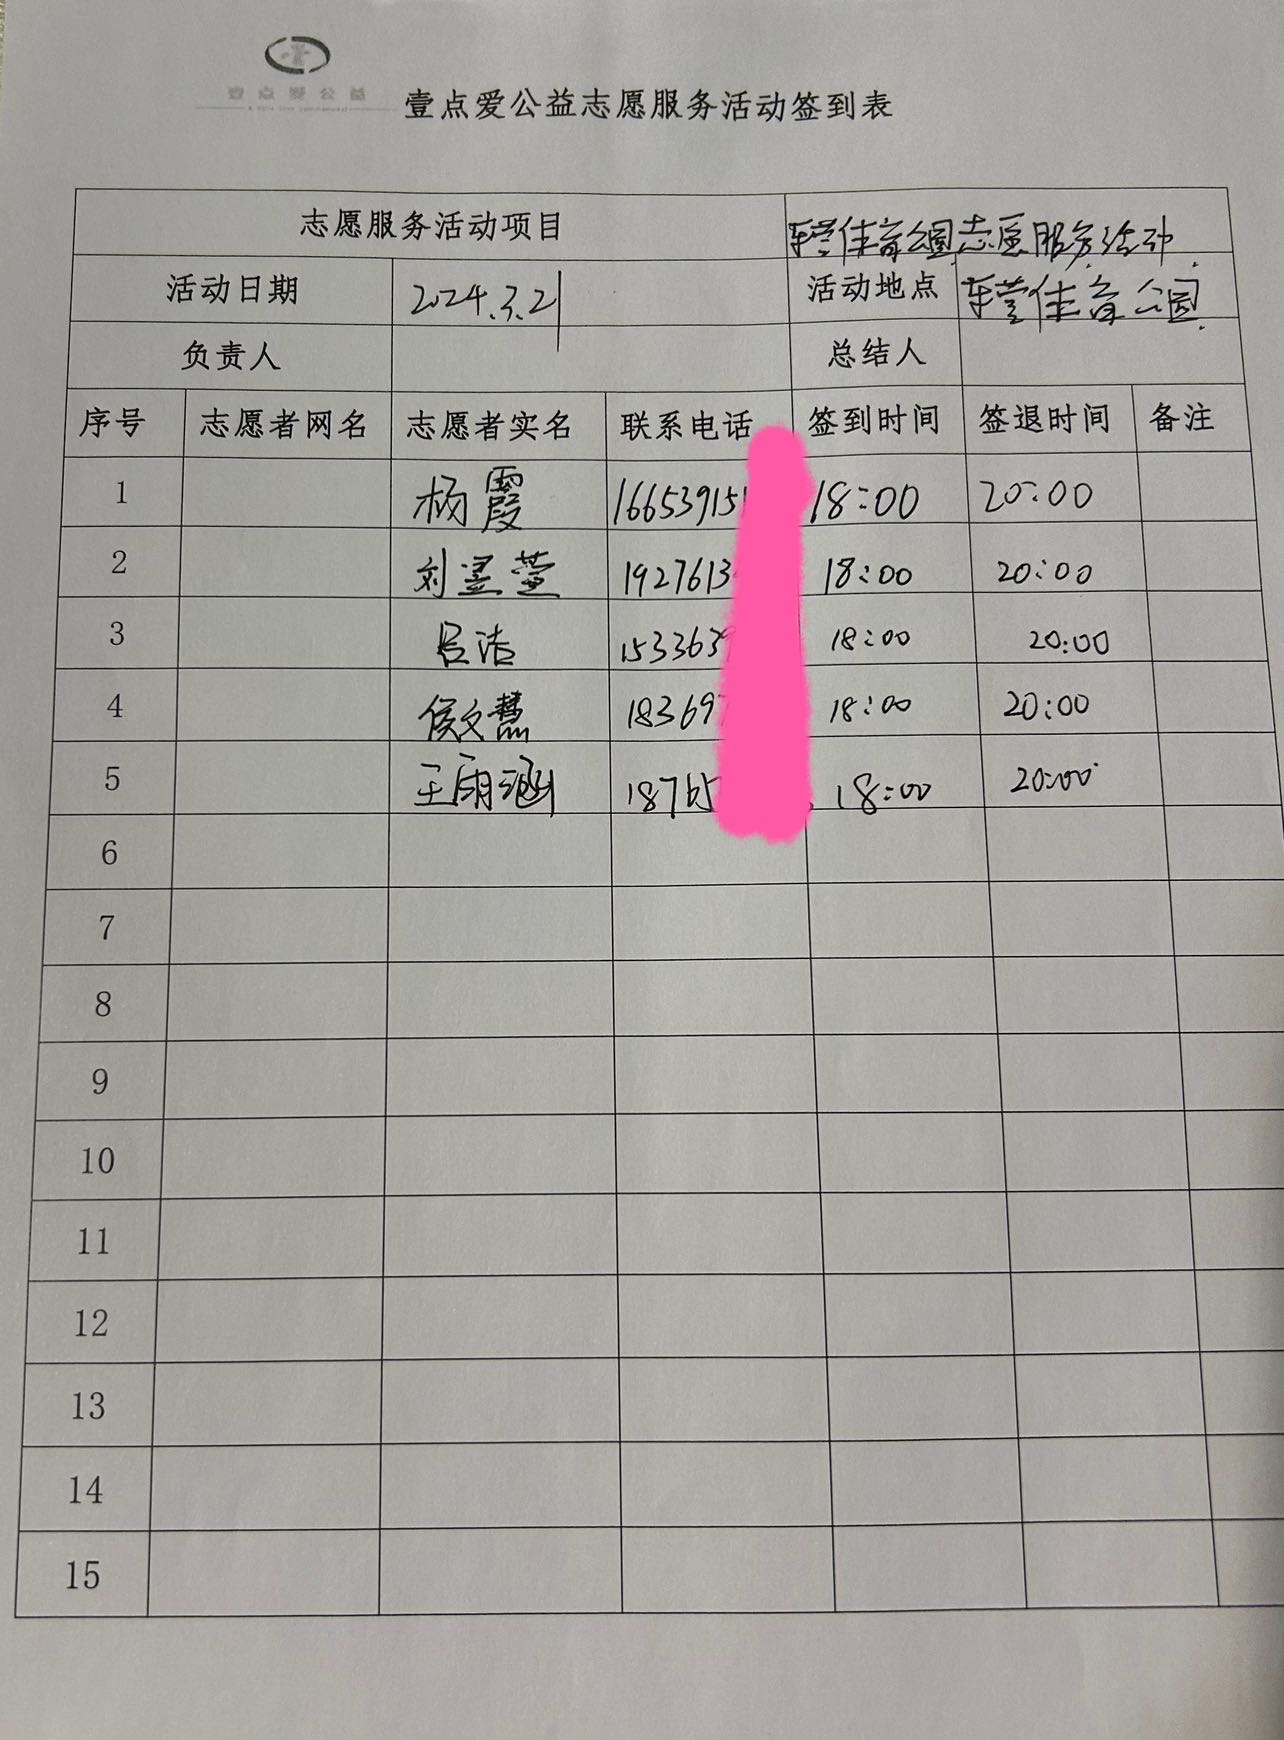 壹点爱公益
壹点爱公益志愿服务活动签到表
志愿服务活动项目 车营体育公园志愿服务活动
活动日期 2024.3.21 活动地点 车营体育公园
负责人 总结人
序号 志愿者网名 志愿者实名 联系电话 签到时间 签退时间 备注
1 杨霞 16653915 18:00 20:00
2 刘昱萱 1927613 18:00 20:00
3 吕洁 153363 18:00 20:00
4 侯文慧 18369 18:00 20:00
5 王雨涵 18765 18:00 20:00
6
7
8
9
10
11
12
13
14
15